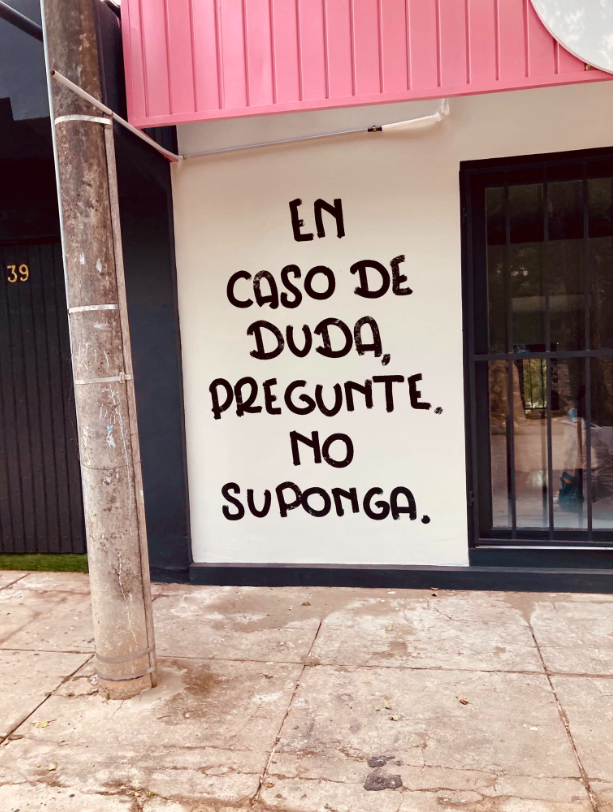 39
EN
CASO DE
DUDA,
PREGUNTE.
NO
SUPONGA.